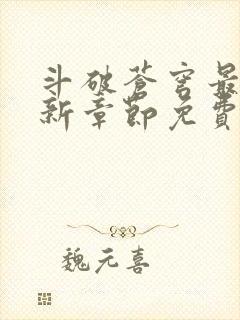 斗破苍穹最
新章节免费
魏元喜